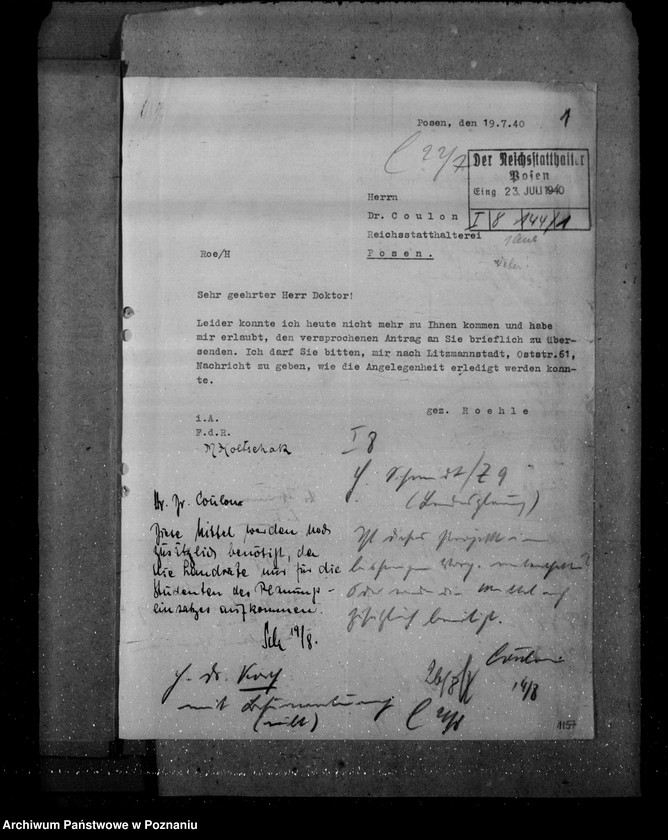 Posen, den 19.7.40
1
C 22/7
Der Reichsstatthalter
Posen
Eing 23. JULI 1940
I 8 144/1
Herrn
Dr. C o u l o n
Reichsstatthalterei
P o s e n .
Roe/H
Sehr geehrter Herr Doktor!
Leider konnte ich heute nicht mehr zu Ihnen kommen und habe
mir erlaubt, den versprochenen Antrag an Sie brieflich zu über-
senden. Ich darf Sie bitten, mir nach Litzmannstadt, Oststr.61,
Nachricht zu geben, wie die Angelegenheit erledigt werden konn-
te.
gez. R o e h l e
i.A.
F.d.R.
I 8
H. Schmidt/Z 9
(Landesplanung)
Hr. Dr. Coulon
Diese Mittel werden noch
zusätzlich benötigt, da
die Landräte nur für die
Studenten des Planungs-
einsatzes aufkommen.
Sch 19/8.
Ist dieses Projekt im
Oder werden die Mittel noch
zusätzlich benötigt.
Coulon
14/8
H. Dr.
mit
1157
Archiwum Państwowe w Poznaniu